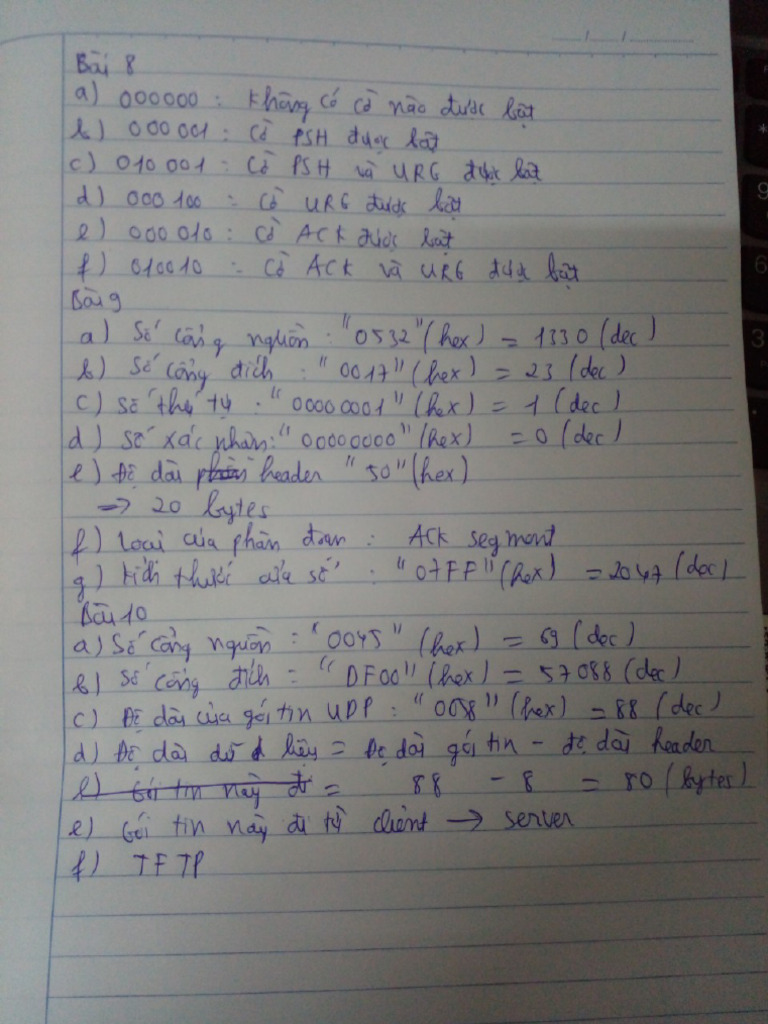 Bài 8
a) 000000 : Không có cờ nào được bật
b) 000 001 : Cờ PSH được bật
c) 010 001 : Cờ PSH và URG được bật
d) 000 100 : Cờ URG được bật
e) 000 010 : Cờ ACK được bật
f) 010010 : Cờ ACK và URG được bật
Bài 9
a) Số cổng nguồn : "0532" (hex) = 1330 (dec)
b) Số cổng đích : "0017" (hex) = 23 (dec)
c) Số thứ tự : "00000001" (hex) = 1 (dec)
d) Số xác nhận : "00000000" (hex) = 0 (dec)
e) Độ dài phần header "50" (hex)
→ 20 bytes
f) Loại của phân đoạn : ACK segment
g) Kích thước cửa sổ : "07FF" (hex) = 2047 (dec)
Bài 10
a) Số cổng nguồn : "0045" (hex) = 69 (dec)
b) Số cổng đích = "DF00" (hex) = 57088 (dec)
c) Độ dài của gói tin UDP : "0058" (hex) = 88 (dec)
d) Độ dài dữ liệu = Độ dài gói tin - độ dài header
e) Gói tin này đi = 88 - 8 = 80 (bytes)
e) Gói tin này đi từ client → server
f) TFTP